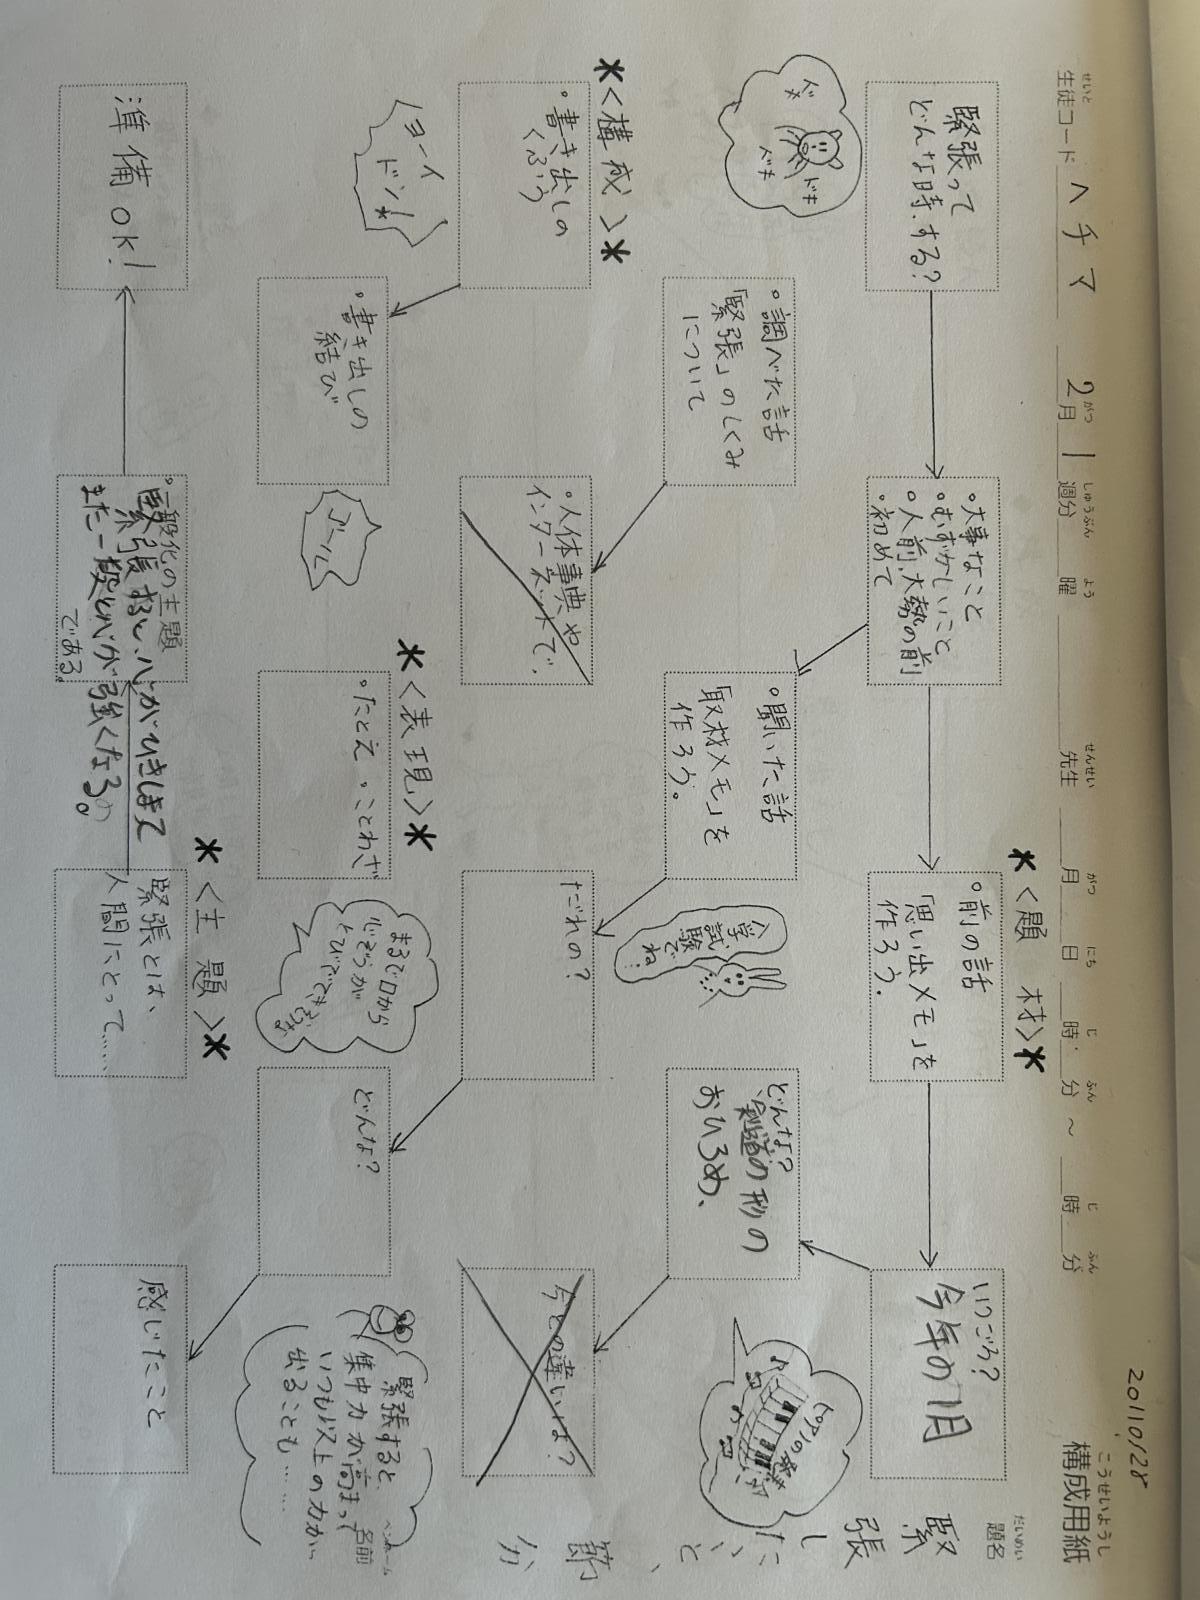 20110128
こうせいようし
構成用紙
せいと
生徒コード ヘチマ 2月1週分 曜 先生 月 日 時 分 〜 時 分
がつ しゅうぶん よう せんせい がつ にち じ ふん じ ふん
だいめい
題名
緊張し
節分
＊＜題材＞＊
緊張って
どんな時、する?
ドキ
ドキ
ドキ
・大事なこと
・むずかしいこと
・人前、大勢の前
・初めて
・前の話
「思い出メモ」を
作ろう。
いつごろ?
今年の1月
ピアノの発
・調べた話
「緊張」のしくみ
について
・聞いた話
「取材メモ」を
作ろう。
入学
試験で
ね!
どんな?
剣道の形の
おひろめ、
＊＜構成＞＊
・書き出しの
くふう
ヨーイ
ドン!
・人体事典や
インターネットで、
だれの?
今との違いは?
・書き出しの
結び
ゴール
＊＜表現＞＊
・たとえ・ことわざ
まるで口から
心ぞうが
とびでてきそうな
どんな?
緊張すると、
集中力が高まって
いつも以上の力が
出ることも……
ペンネーム
名前
＊＜主題＞＊
準備OK!
・一般化の主題
緊張すると、心がひきしまって
また一段と心が強くなるの
である。
緊張とは、
人間にとって……
感じたこと